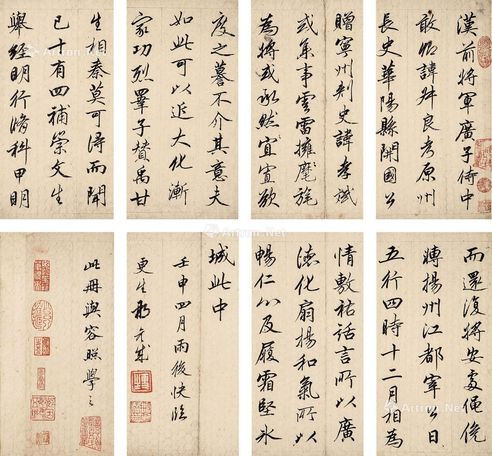 漢前將軍廣子侍中
敢卿諱昇良考原州
長史華陽縣開國公
贈寧州刺史諱孝斌
或集事雲雷擁麾旄
為將或然宜寘歟
度之蓍不介其意夫
如此可以近大化漸
家功烈羣子贊禹甘
生相秦莫可得而聞
已十有四補崇文生
舉經明行脩科甲明
而還復將安處俛
轉揚州江都宰公日
五行四時十二月相為
情敷祐話言所以廣
德化扇揚和氣所以
暢仁心及履霜堅冰
城此中
壬申四月雨後快臨
更生
此冊與容照學之